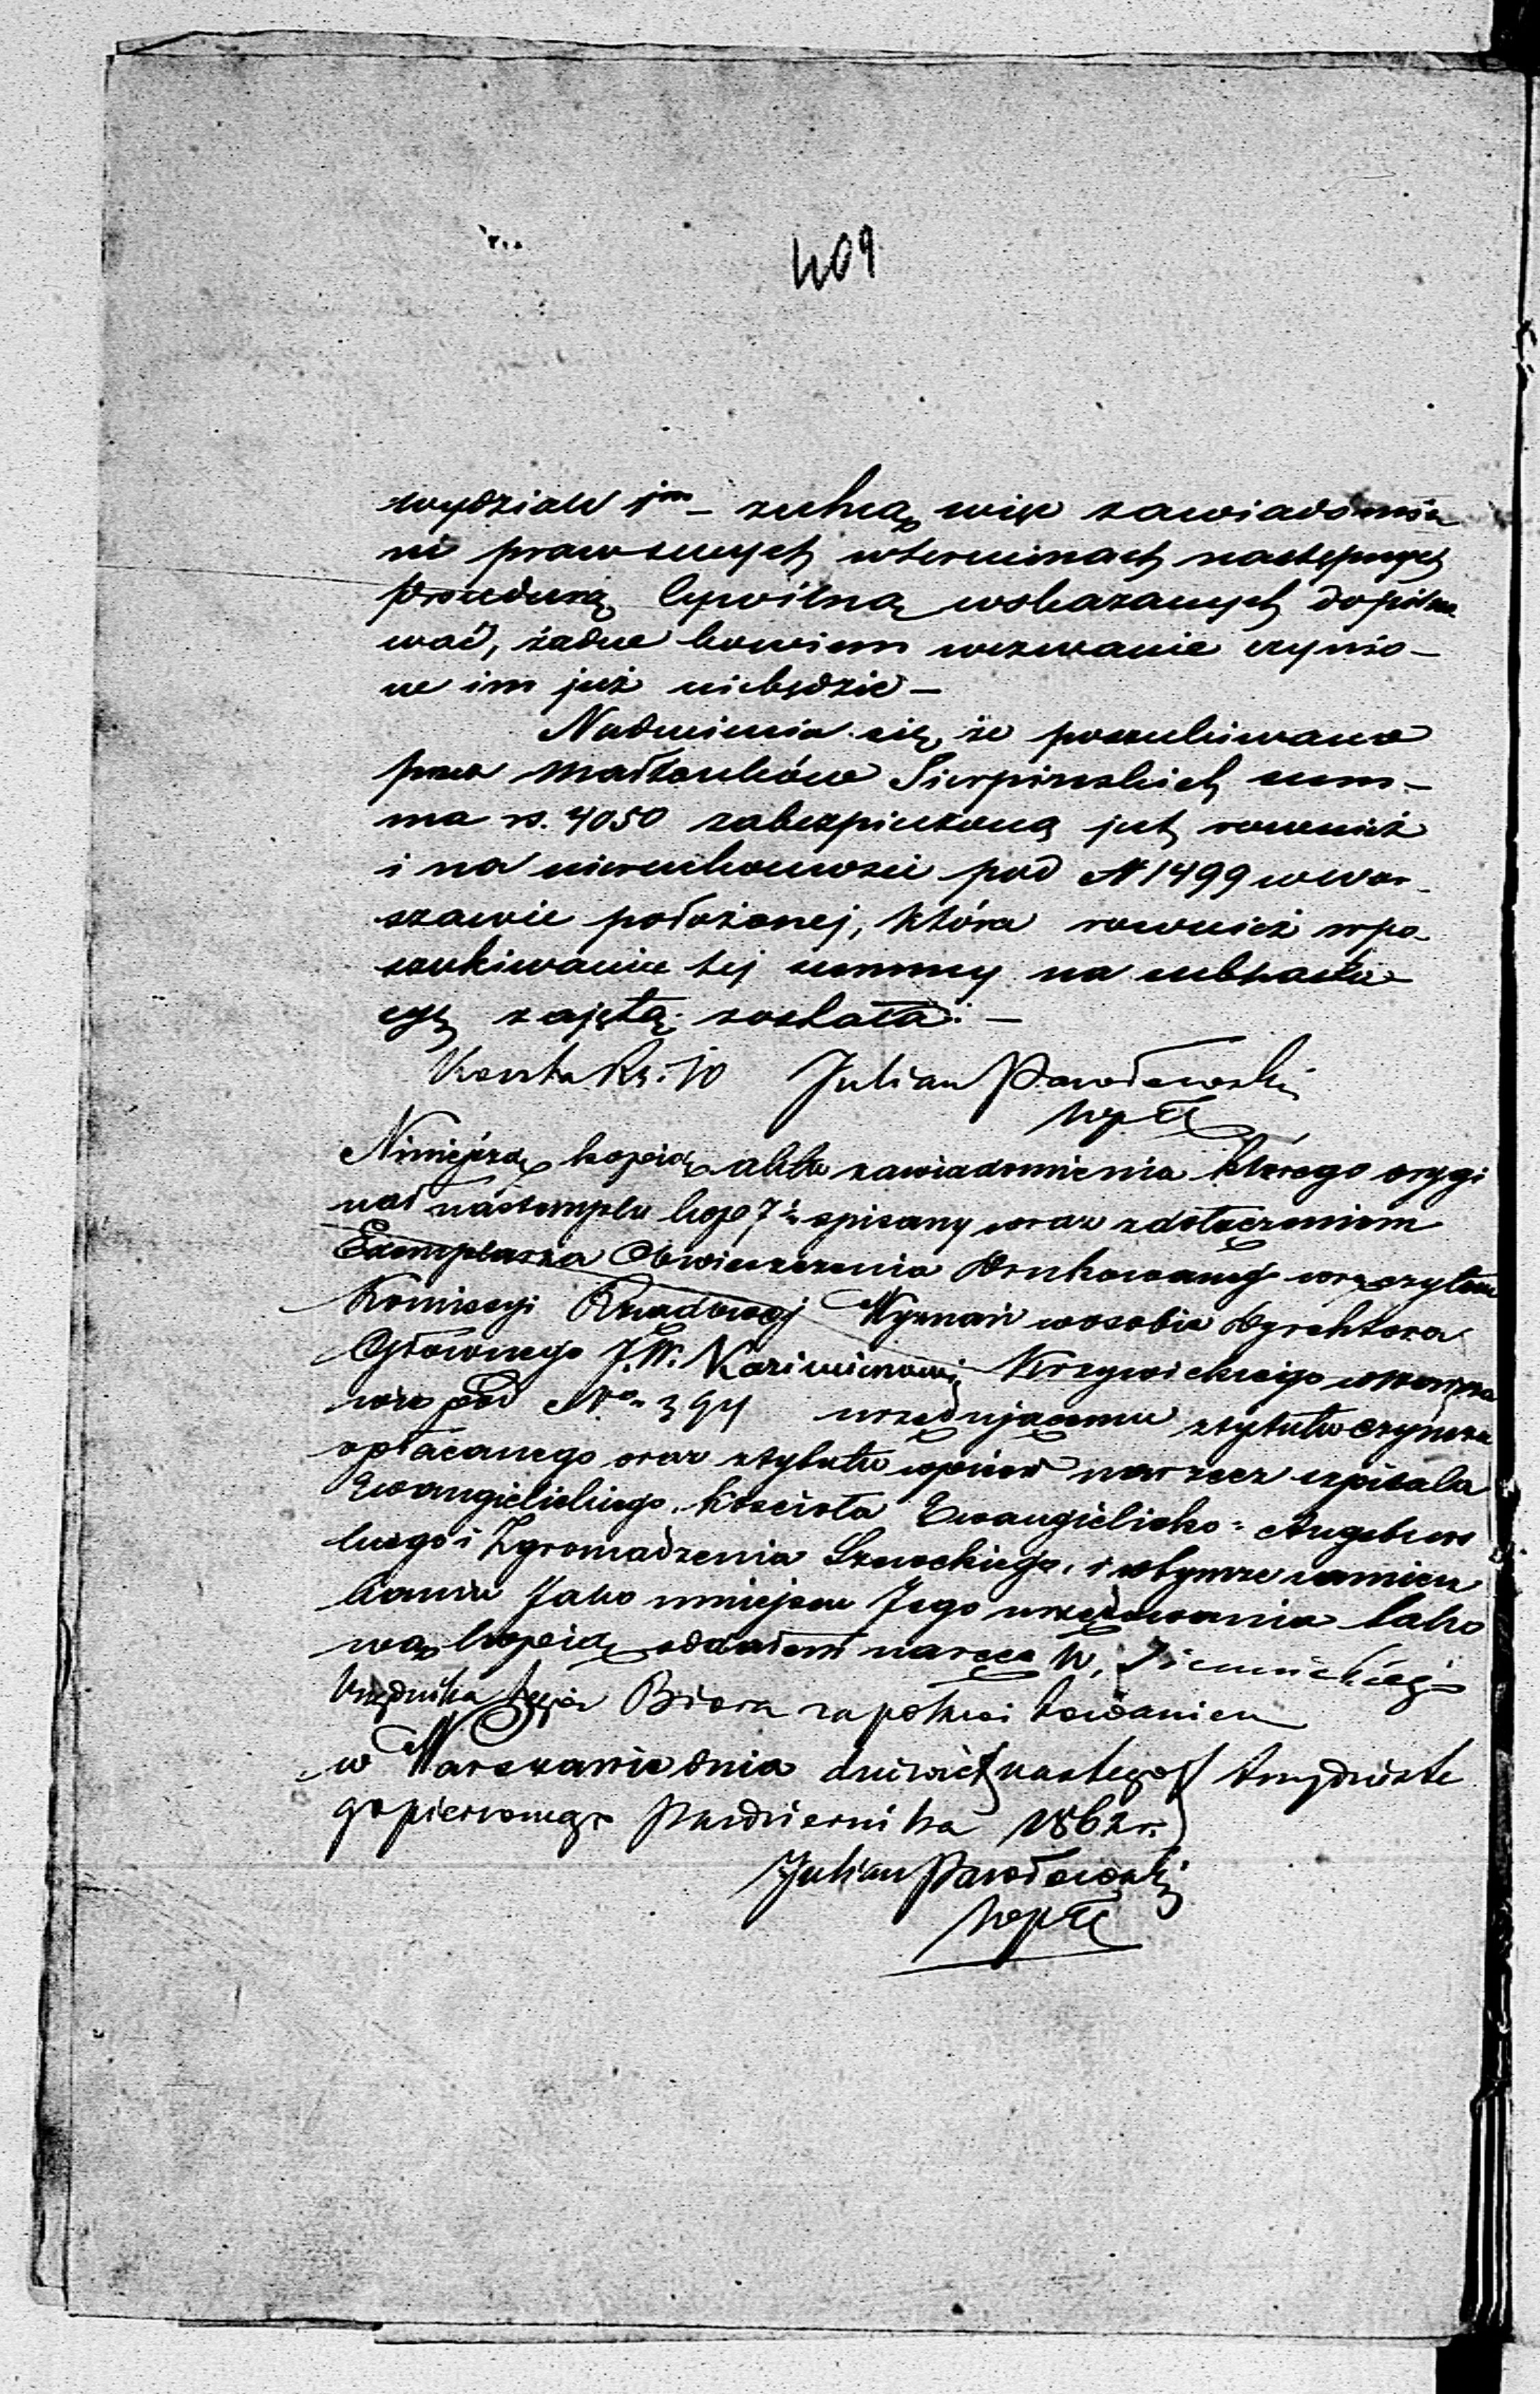 409
wydziale 1m – zechcą więc zawiadomie-
ni praw swych w terminach następnych
procedurą Cywilną wskazanych dopilno-
wać, żadne bowiem wezwanie czynio-
ne im już niebędzie –
Nadmienia się, że poszukiwana
przez Małżonków Sierpińskich sum-
ma rs. 4050 zabezpieczoną jest rownież
i na nieruchomości pod N 1499 w War-
szawie położonej, która rownież w po-
szukiwaniu tej summy na subhasta-
cyą zajętą została. –
Koszta Rs: 10 Julian Pawłowski
Niniejszą kopią aktu zawiadomienia którego orygi
nał na stemplu kop 7½ spisany wraz z dołączeniem
Exemplarza Obwieszczenia drukowanego wręczyłem
Komissyi Rządowej Wyznań w osobie Dyrektora
Głównego J.W. Kazimierzowi Krzywickiego w Warsza
wie pod No 394 urzędującemu z tytułu czynszu
opłacanego oraz z tytułu wpisów na rzecz szpitala
Ewangielickiego, Kościoła Ewangielicko-Augsburs
kiego i Zgromadzenia Szewckiego, i w tymże zamiesz
kaniu Jako miejscu Jego urzędowania tako
wą kopią oddałem na ręce W.
Urzędnika tegoż Biora za pokwitowaniem
w Warszawie dnia dziewiętnastego/ trzydzieste
go pierwszego Pazdziernika 1862 r.
Julian Pawłowski